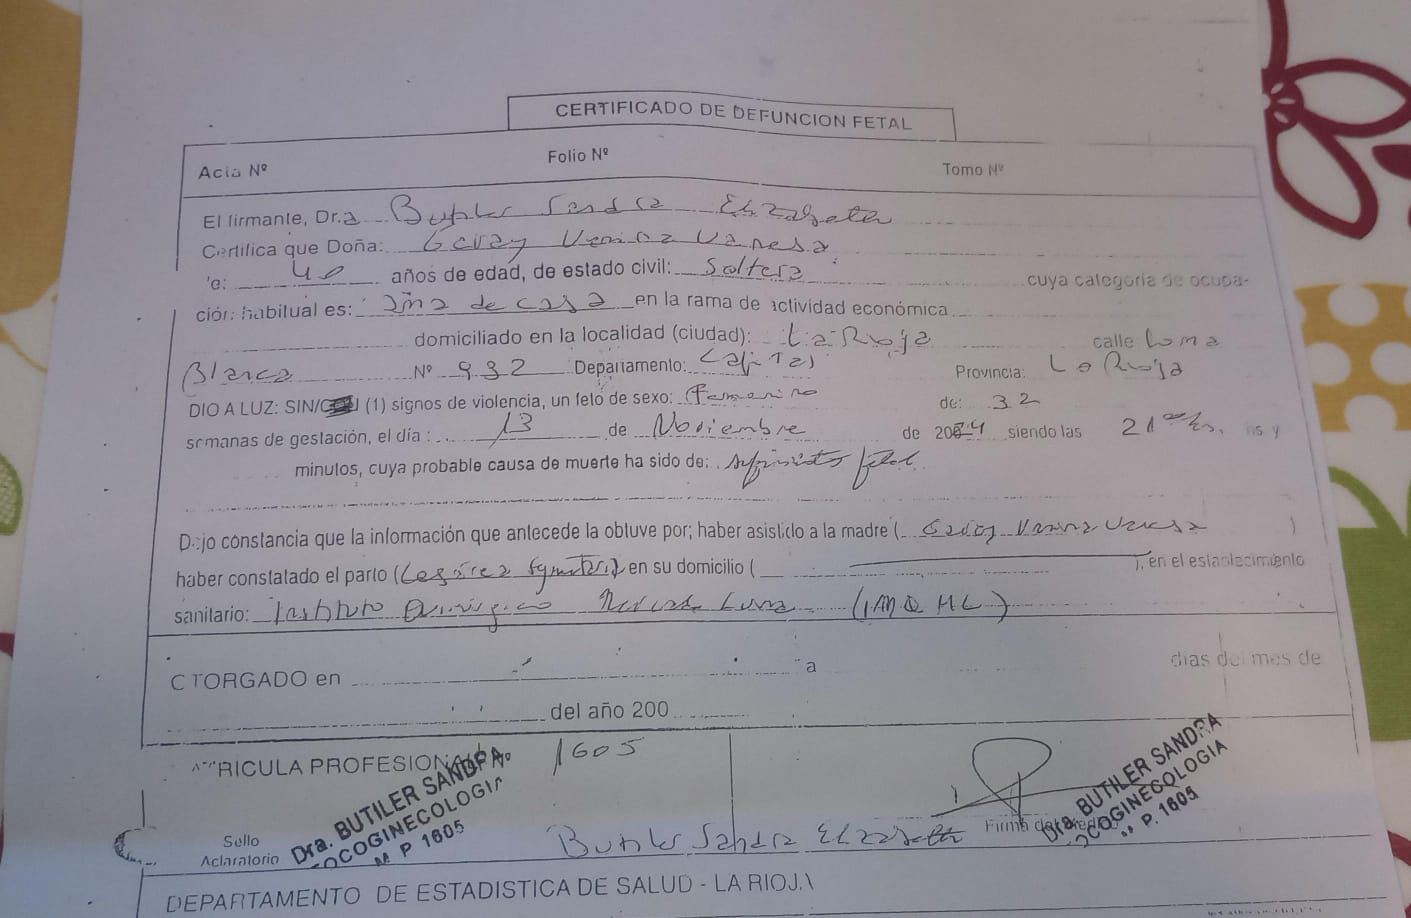 CERTIFICADO DE DEFUNCION FETAL
Acta Nº Folio Nº Tomo Nº
El firmante, Dr.a Butiler Sandra Elizabeth
Certifica que Doña: Garay Vanesa
de: 40 años de edad, de estado civil: Soltera cuya categoria de ocupa-
ción habitual es: ama de casa en la rama de actividad económica
domiciliado en la localidad (ciudad): La Rioja calle Loma
Blanca Nº 932 Departamento: Capital Provincia: La Rioja
DIO A LUZ: SIN/ (1) signos de violencia, un feto de sexo: Femenino de: 32
semanas de gestación, el día: 13 de Noviembre de 20 siendo las 21 hs. hs y
minutos, cuya probable causa de muerte ha sido de: Sufrimiento fetal
Dejo constancia que la información que antecede la obtuve por; haber asistido a la madre ( Garay Vanesa )
haber constatado el parto (Cesárea ) en su domicilio ( ), en el establecimiento
sanitario: Instituto Quirúrgico Mercado Luna
OTORGADO en a días del mes de
del año 200
MATRICULA PROFESIONAL Nº 1605
Dra. BUTILER SANDRA
TOCOGINECOLOGIA
M P 1605
Sello
Aclaratorio
Butiler Sandra Elizabeth
Firma del Medico
Dra. BUTILER SANDRA
TOCOGINECOLOGIA
M P. 1605
DEPARTAMENTO DE ESTADISTICA DE SALUD - LA RIOJA